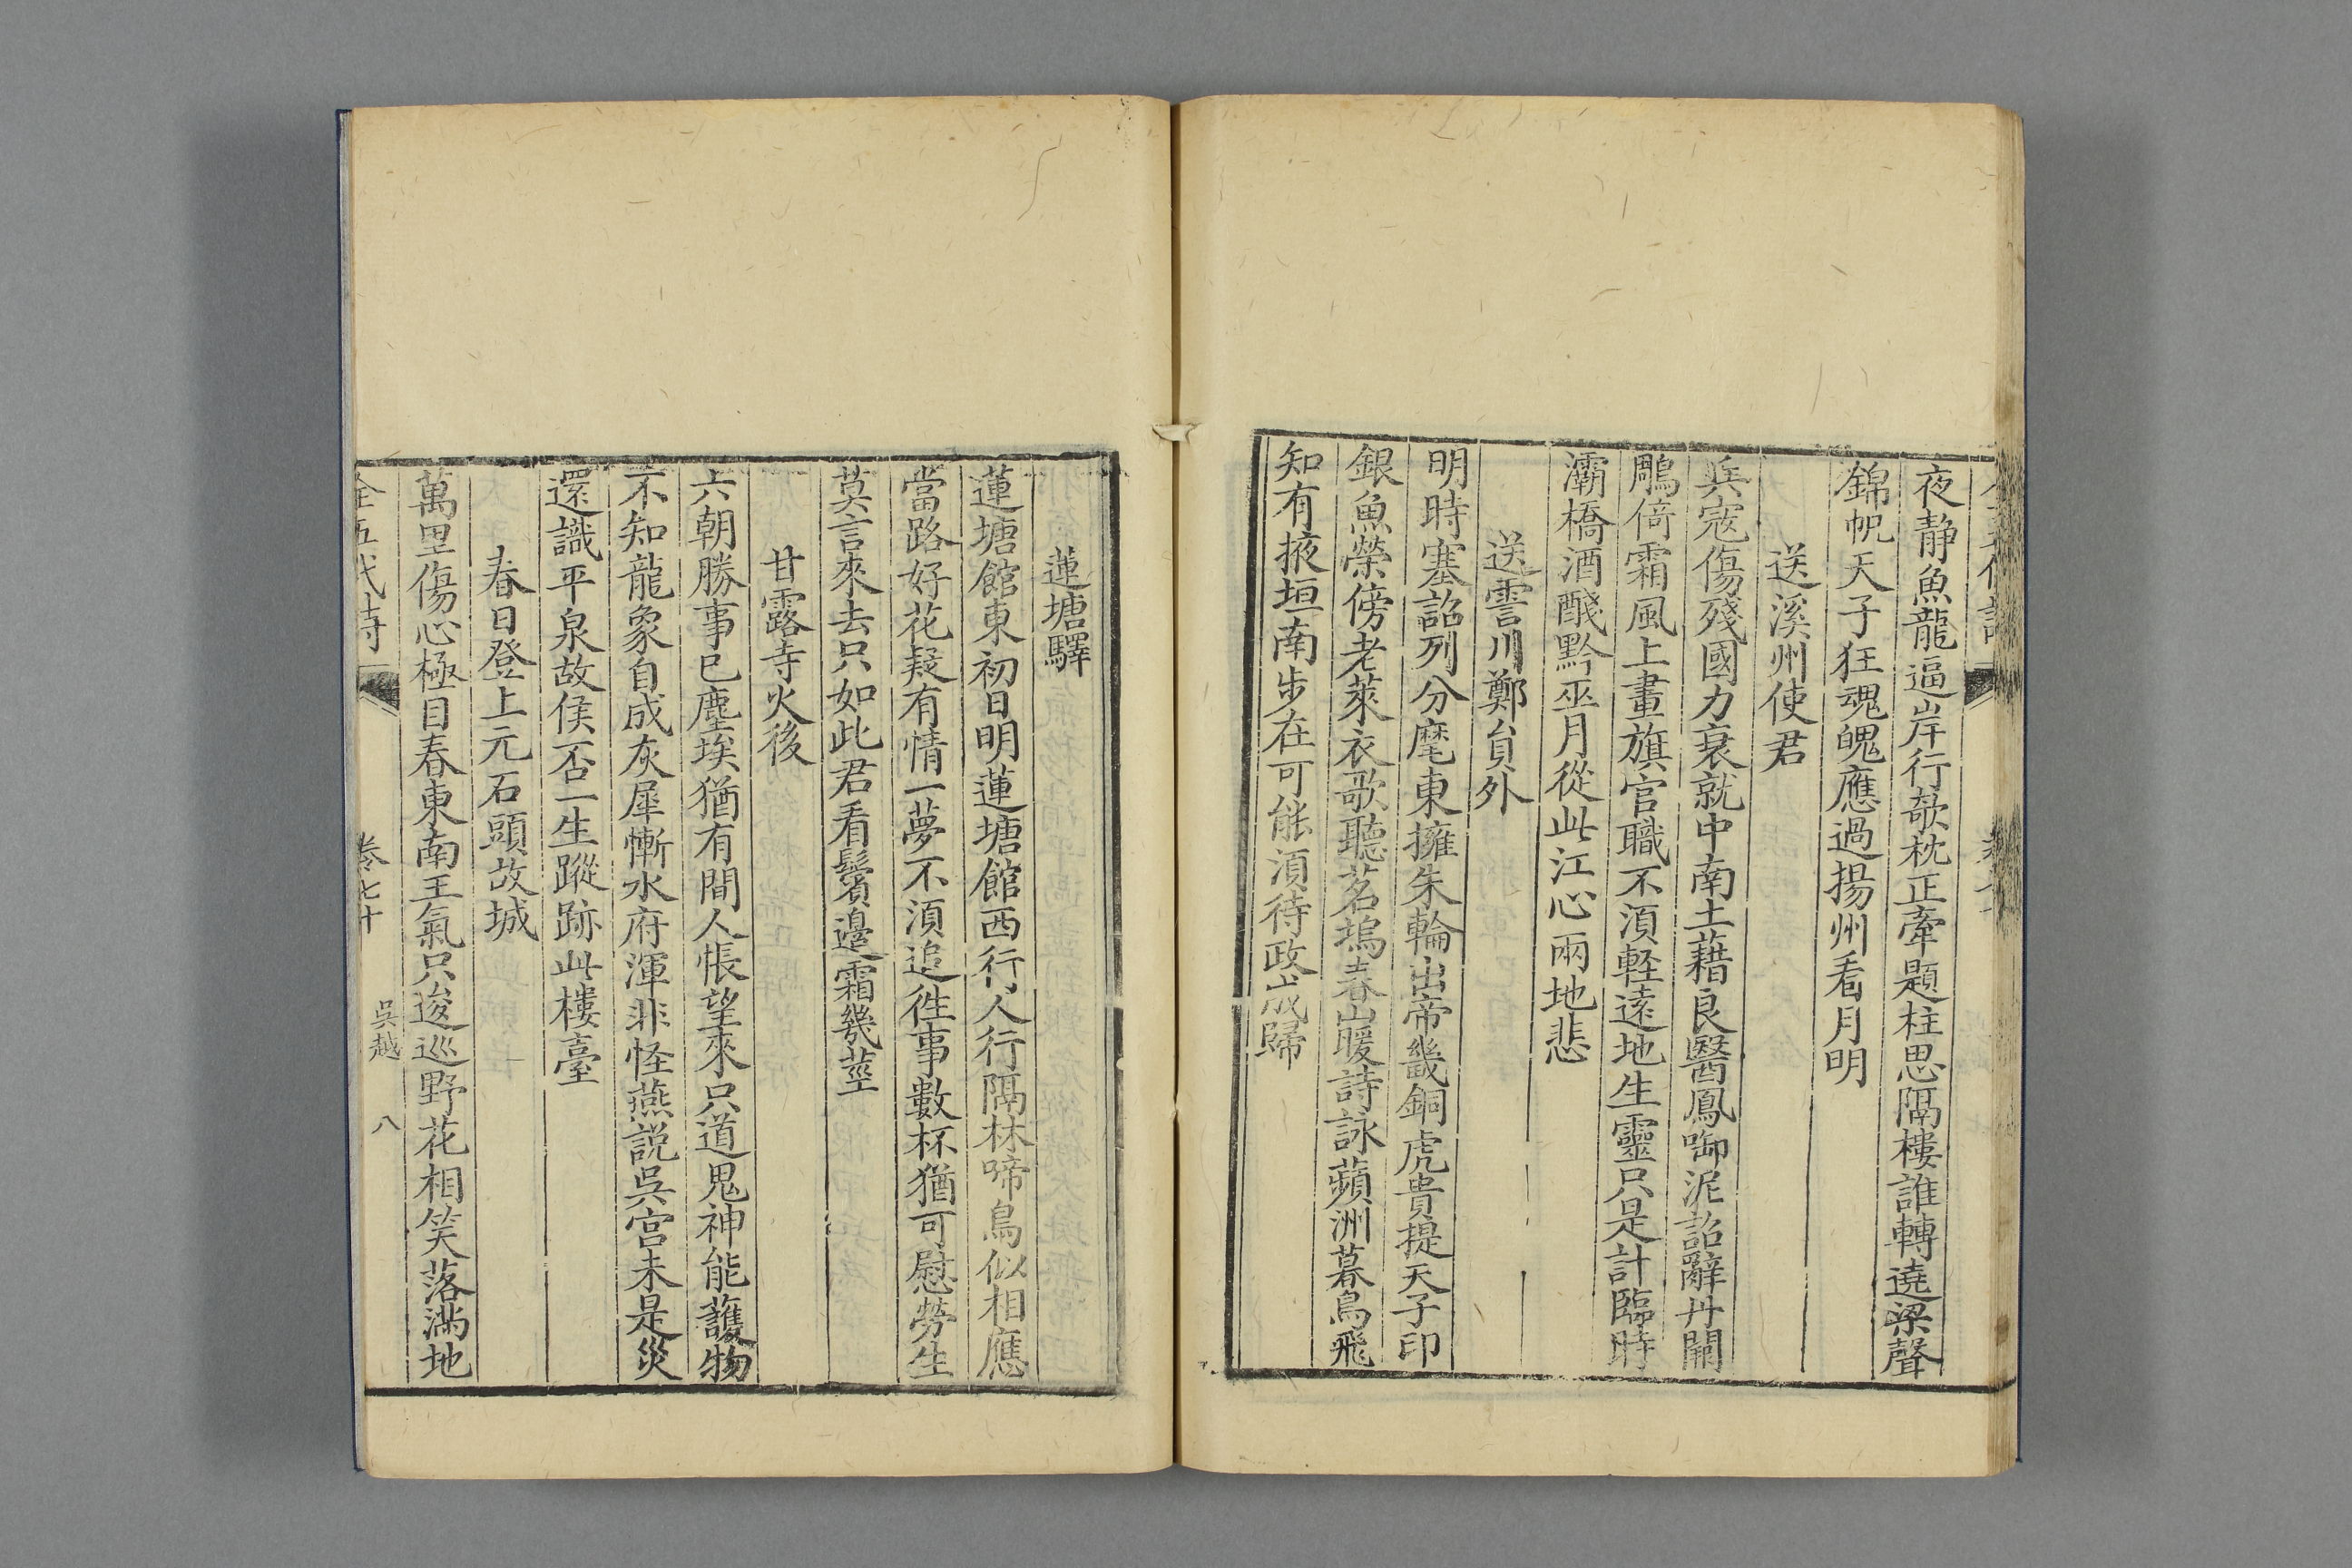 夜静魚龍逼岸行欹枕正牽題柱思隔樓誰轉遶梁聲
錦帆天子狂魂魄應過揚州看月明
送溪州使君
兵寇傷殘國力衰就中南土藉良醫鳳啣泥詔辭丹闕
鵰倚霜風上畫旗官職不湏軽遠地生靈只是計臨時
灞橋酒醆黔巫月從此江心兩地悲
送霅川鄭貟外
明時塞詔列分麾東擁朱輪出帝畿銅虎貴提天子印
銀魚榮傍老萊衣歌聽茗塢春山暖詩詠蘋洲暮鳥飛
知有掖垣南步在可能湏待政成歸
蓮塘驛
蓮塘館東初日明蓮塘館西行人行隔林啼鳥似相應
當路好花疑有情一夢不湏追徃事數杯猶可慰勞生
莫言來去只如此君看鬢邊霜幾莖
甘露寺火後
六朝勝事已塵埃猶有間人悵望來只道鬼神能護物
不知龍象自成灰犀慚水府渾非怪燕説吳宫未是災
還識平泉故侯否一生蹤跡此樓臺
春日登上元石頭故城
萬里傷心極目春東南王氣只逡巡野花相笑落滿地
全五代詩 卷七十 吳越 八